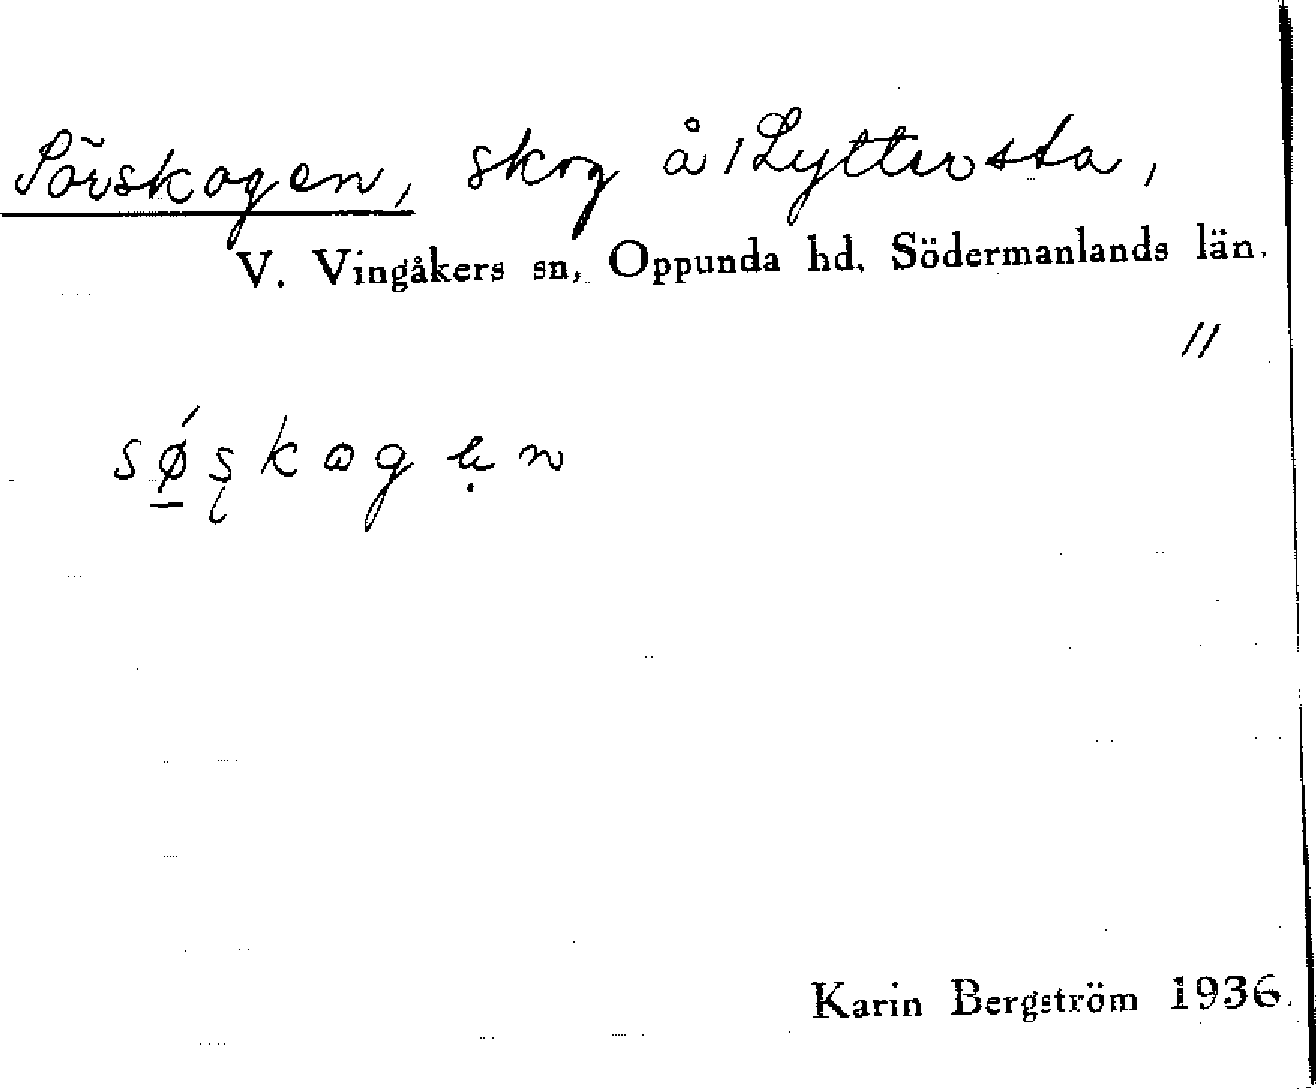 Sörskogen, skog å 1 Lyttersta,
V. Vingåkers sn, Oppunda hd, Södermanlands län.
11
sǿ̱ʂkɷgẹn
Karin Bergström 1936.